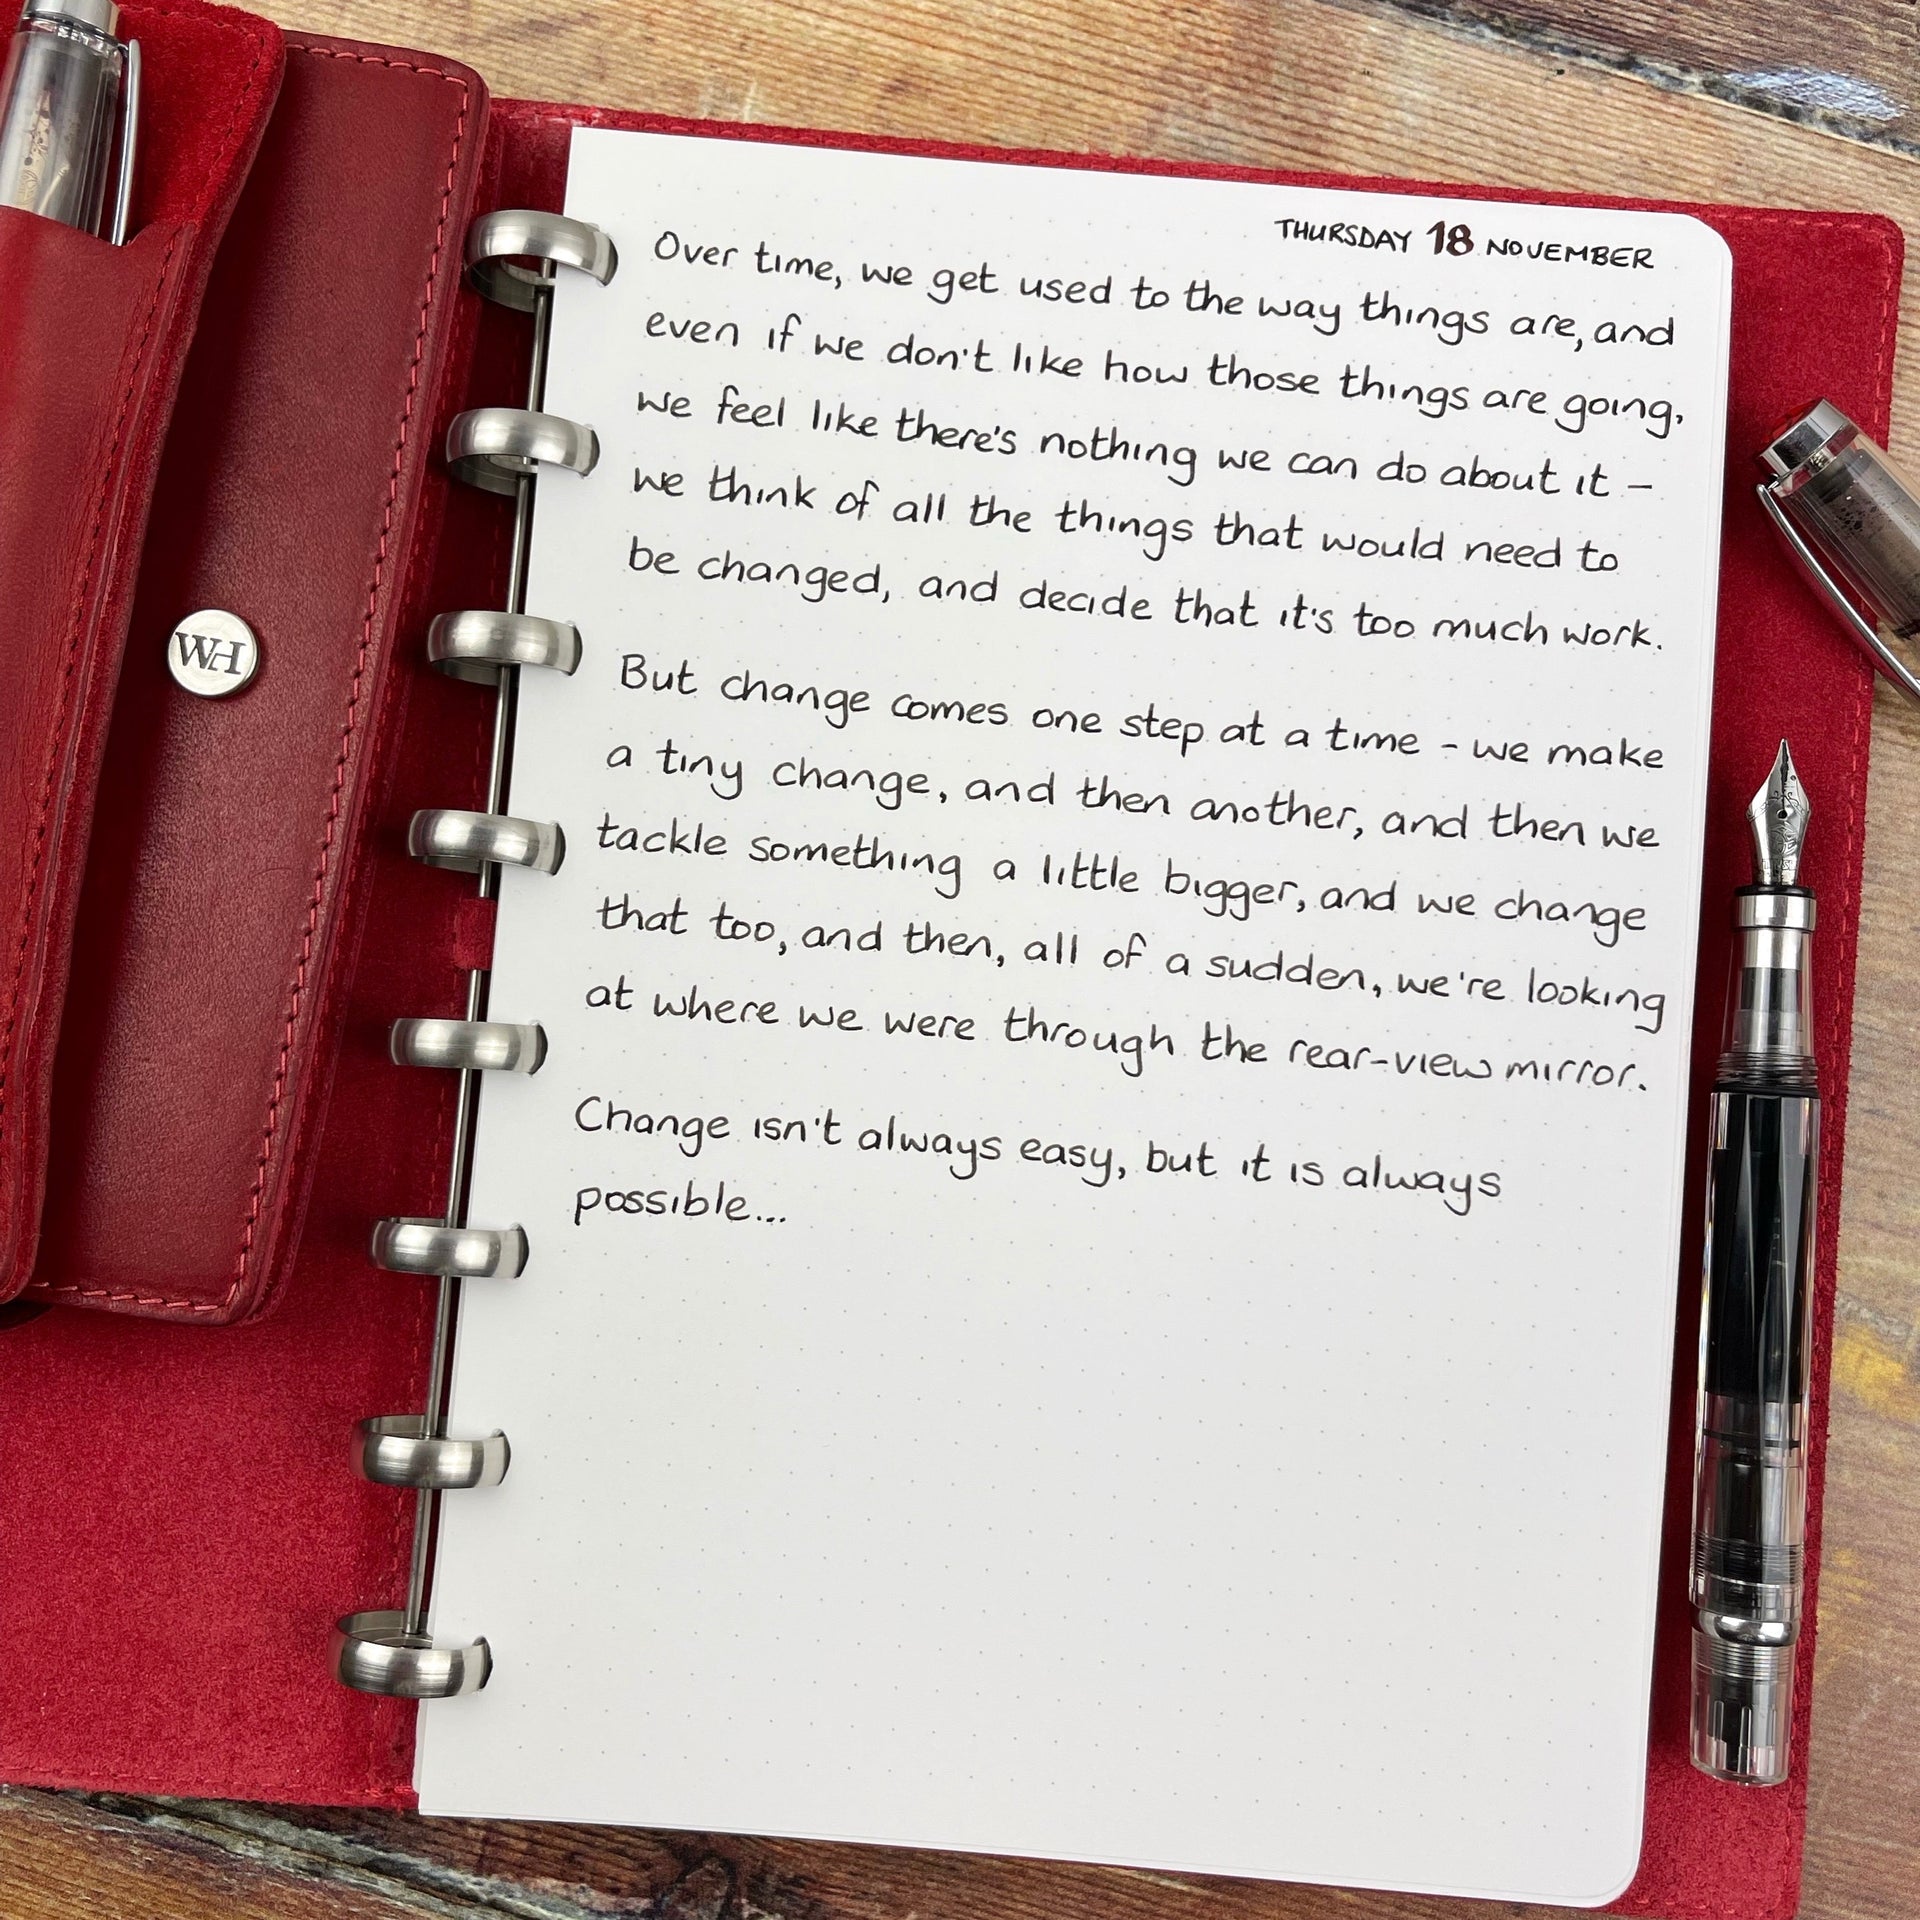 THURSDAY 18 NOVEMBER
Over time, we get used to the way things are, and
even if we don't like how those things are going,
we feel like there's nothing we can do about it –
we think of all the things that would need to
be changed, and decide that it's too much work.
But change comes one step at a time – we make
a tiny change, and then another, and then we
tackle something a little bigger, and we change
that too, and then, all of a sudden, we're looking
at where we were through the rear-view mirror.
Change isn't always easy, but it is always
possible...
WH